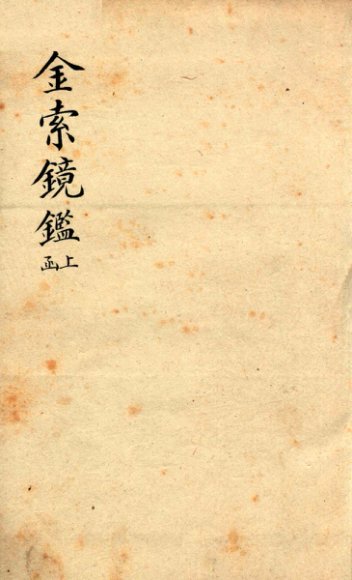 金索鏡鑑
上函